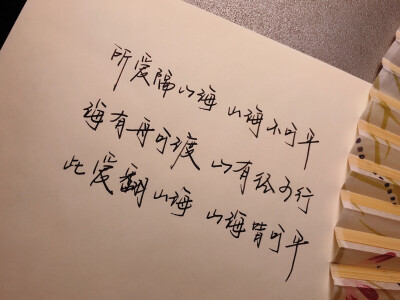 所爱隔山海 山海不可平
海有舟可渡 山有径可行
此爱翻山海 山海皆可平